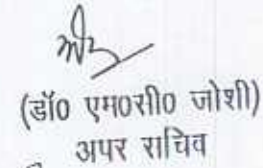 (डॉ0 एम0सी0 जोशी)
अपर सचिव